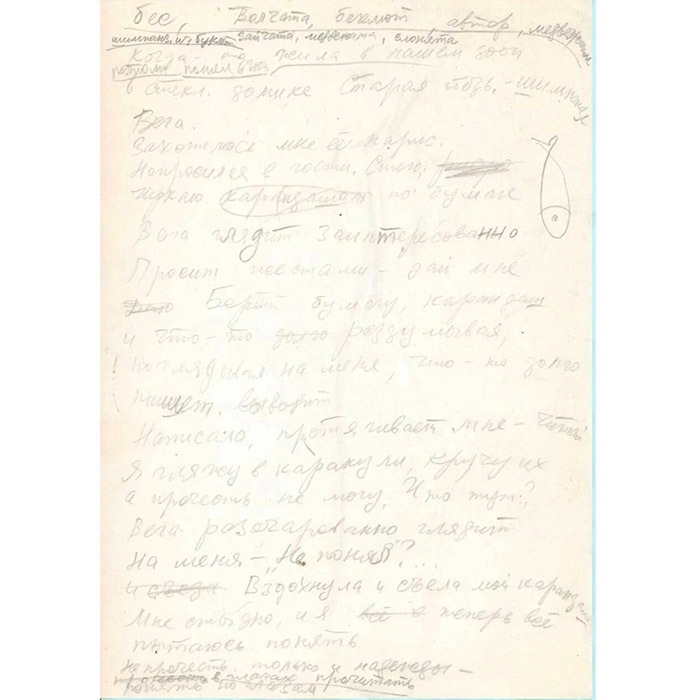 бес, Волчата, бегемот, автор, медвежонок
шимпанзе из букет зайчата, медвежата, слонята
Когда-то жила в нашем зоо
потрями понять глаз
в стекл. домике старая обезь.-шимпанзе
Вега.
Захотелось мне её нарис.
Напросился в гости. Стою,
чиркаю карандашом по бумаге
Вега глядит заинтересованно
Просит жестами – дай мне
Даю Берёт бумагу, карандаш
и что-то долго раздумывая,
! поглядывая на меня, что-то долго
пишет, выводит
Написала, протягивает мне – читай
Я гляжу в каракули, кручу их
а прочесть не могу. Что тут?
Вега разочарованно глядит
На меня – Не понял?...
и съела Вздохнула и съела мой карандаш
Мне стыдно, и я всё в теперь всё
пытаюсь понять
не прочесть, только и надежды –
прочесть в глазах прочитать
понять по глазам